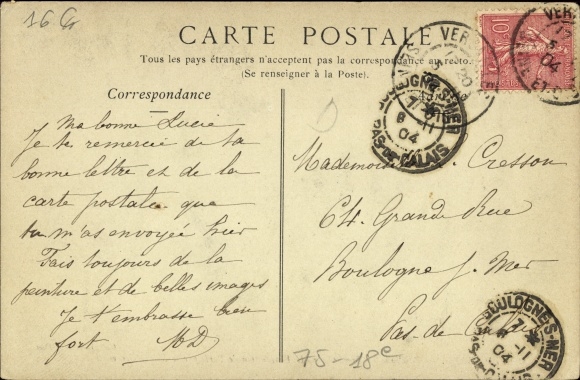 16 G
CARTE POSTALE
Tous les pays étrangers n'acceptent pas la correspondance au recto.
(Se renseigner à la Poste).
Correspondance
Ma bonne Lucie
Je te remercie de ta
bonne lettre et de la
carte postale que
tu m'as envoyée hier
Fais toujours de la
peinture et de belles images
Je t'embrasse bien
fort MD
Cresson
Grande Rue
Boulogne s. Mer
Pas de
75-18e
BOULOGNE-S-MER
PAS-DE-CALAIS
8 -11
04
BOULOGNE-S-MER
7
8 -11
04
VER
5
04
10